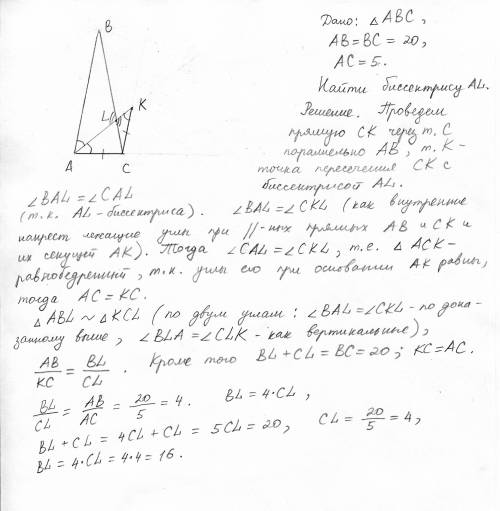 B
K
L
A
C
Дано: △ ABC,
AB = BC = 20,
AC = 5.
Найти биссектрису AL.
Решение. Проведем
прямую CK через т. C
параллельно AB, т. K -
точка пересечения CK с
биссектрисой AL.
∠BAL = ∠CAL
(т.к. AL - биссектриса). ∠BAL = ∠CKL (как внутренние
накрест лежащие углы при ||-ных прямых AB и CK и
их секущей AK). Тогда ∠CAL = ∠CKL, т.е. △ ACK -
равнобедренный, т.к. углы его при основании AK равны,
тогда AC = KC.
△ ABL ~ △ KCL (по двум углам: ∠BAL = ∠CKL - по дока-
занному выше, ∠BLA = ∠CLK - как вертикальные),
AB/KC = BL/CL. Кроме того BL + CL = BC = 20; KC = AC.
BL/CL = AB/AC = 20/5 = 4. BL = 4·CL,
BL + CL = 4CL + CL = 5CL = 20, CL = 20/5 = 4,
BL = 4·CL = 4·4 = 16.